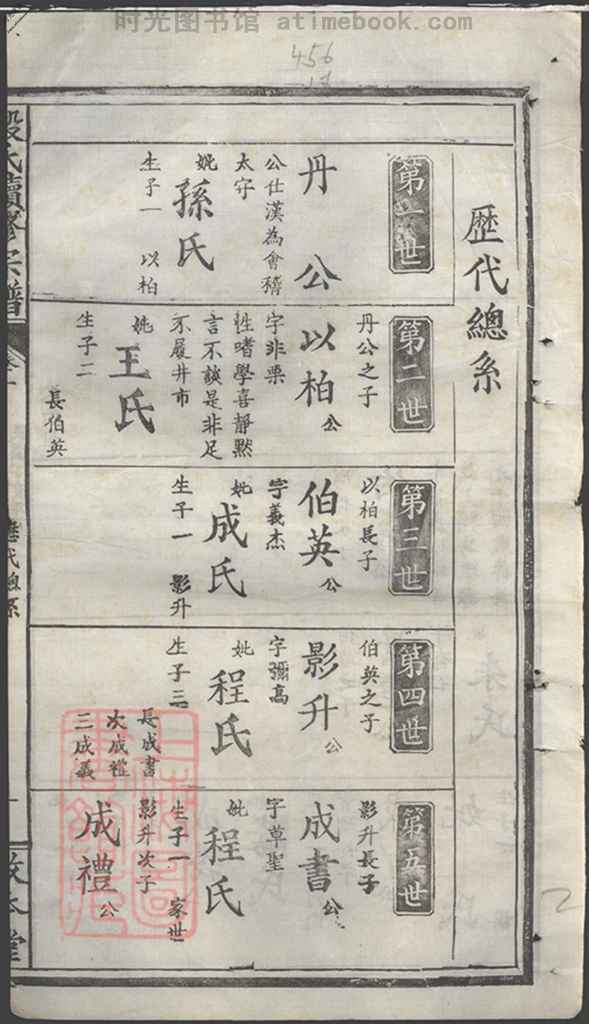 时光图书馆 atimebook.com
456
歷代總系
第一世
丹公
公仕漢為會稽
太守
妣孫氏
生子一 以柏
第二世
丹公之子
以柏公
字非栗
性嗜學喜靜默
言不談是非足
不履井市
妣王氏
生子二
長伯英
第三世
以柏長子
伯英公
字義杰
妣成氏
生子一 影升
第四世
伯英之子
影升公
字彌高
妣程氏
生子三
長成書
次成禮
三成義
第五世
影升長子
成書公
字草聖
妣程氏
生子一 家世
影升次子
成禮公
氏續修宗譜
歷代總系
2